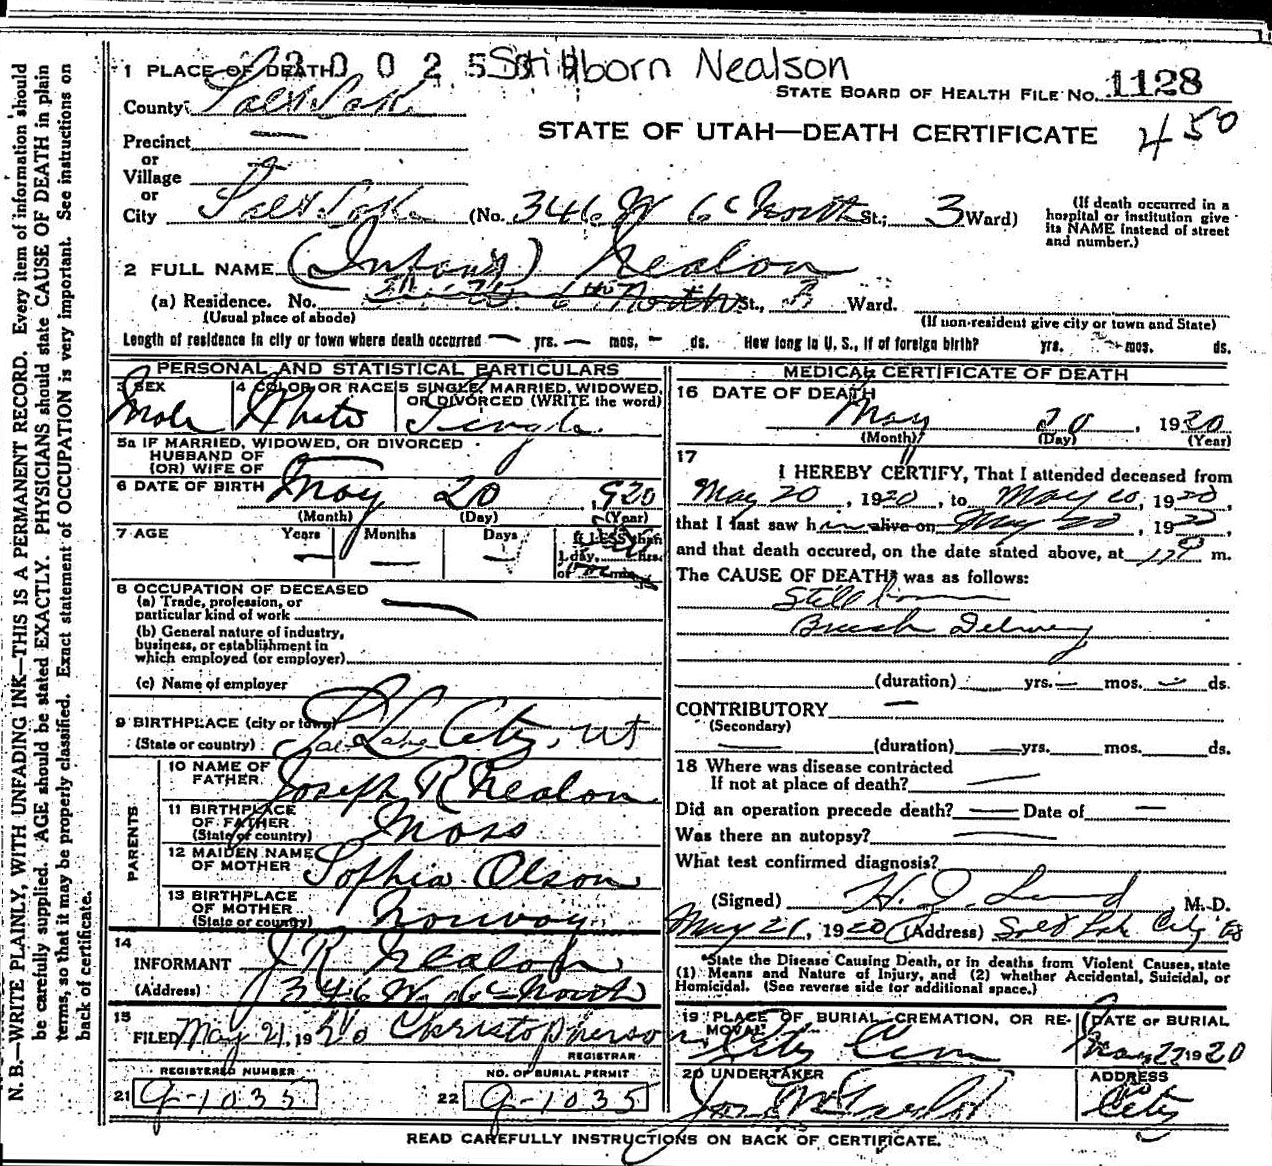 30025 Stillborn Nealson
1 PLACE OF DEATH
STATE BOARD OF HEALTH FILE NO. 1128
County Salt Lake
STATE OF UTAH—DEATH CERTIFICATE 450
Precinct —
or
Village
or
City Salt Lake (No. 346 W 6 North St.; 3 Ward)
(If death occurred in a hospital or institution give its NAME instead of street and number.)
2 FULL NAME (Infant) Nealon
(a) Residence. No. W. 6th North St., 3 Ward.
(Usual place of abode)
(If non-resident give city or town and State)
Length of residence in city or town where death occurred — yrs. — mos. — ds. How long in U. S., if of foreign birth? yrs. mos. ds.
PERSONAL AND STATISTICAL PARTICULARS
3 SEX Male
4 COLOR OR RACE White
5 SINGLE, MARRIED, WIDOWED, OR DIVORCED (WRITE the word) Single
5a IF MARRIED, WIDOWED, OR DIVORCED
HUSBAND OF
(OR) WIFE OF
6 DATE OF BIRTH May 20 920
(Month) (Day) (Year)
7 AGE Years — Months — Days
If LESS than
1 day, hrs.
or min.
8 OCCUPATION OF DECEASED
(a) Trade, profession, or
particular kind of work —
(b) General nature of industry,
business, or establishment in
which employed (or employer)
(c) Name of employer
9 BIRTHPLACE (city or town)
(State or country) Salt Lake City, Ut
PARENTS
10 NAME OF
FATHER Joseph R Nealon
11 BIRTHPLACE
OF FATHER
(State or country) Mass
12 MAIDEN NAME
OF MOTHER Sophia Olson
13 BIRTHPLACE
OF MOTHER
(State or country) Norway
14
INFORMANT J R Nealon
(Address) 346 W. 6 North
15
FILED May 21, 1920 Christopherson
REGISTRAR
REGISTERED NUMBER
21 9-1035
NO. OF BURIAL PERMIT
22 9-1035
MEDICAL CERTIFICATE OF DEATH
16 DATE OF DEATH
May 20, 1920
(Month) (Day) (Year)
17
I HEREBY CERTIFY, That I attended deceased from
May 20, 1920, to May 20, 1920,
that I last saw him alive on May 20, 1920,
and that death occured, on the date stated above, at m.
The CAUSE OF DEATH* was as follows:
Stillborn
Breech Delivery
(duration) yrs. — mos. — ds.
CONTRIBUTORY —
(Secondary)
— (duration) — yrs. mos. ds.
18 Where was disease contracted
If not at place of death? —
Did an operation precede death? — Date of —
Was there an autopsy? —
What test confirmed diagnosis?
(Signed) H. J. Lund, M. D.
May 21, 1920 (Address) Salt Lake City
*State the Disease Causing Death, or in deaths from Violent Causes, state
(1) Means and Nature of Injury, and (2) whether Accidental, Suicidal, or
Homicidal. (See reverse side for additional space.)
19 PLACE OF BURIAL, CREMATION, OR RE-
MOVAL City Cem
DATE OF BURIAL
May 22 1920
20 UNDERTAKER
Jos. Wm Taylor
ADDRESS
City
READ CAREFULLY INSTRUCTIONS ON BACK OF CERTIFICATE.
N. B.—WRITE PLAINLY, WITH UNFADING INK—THIS IS A PERMANENT RECORD. Every item of information should
be carefully supplied. AGE should be stated EXACTLY. PHYSICIANS should state CAUSE OF DEATH in plain
terms, so that it may be properly classified. Exact statement of OCCUPATION is very important. See instructions on
back of certificate.